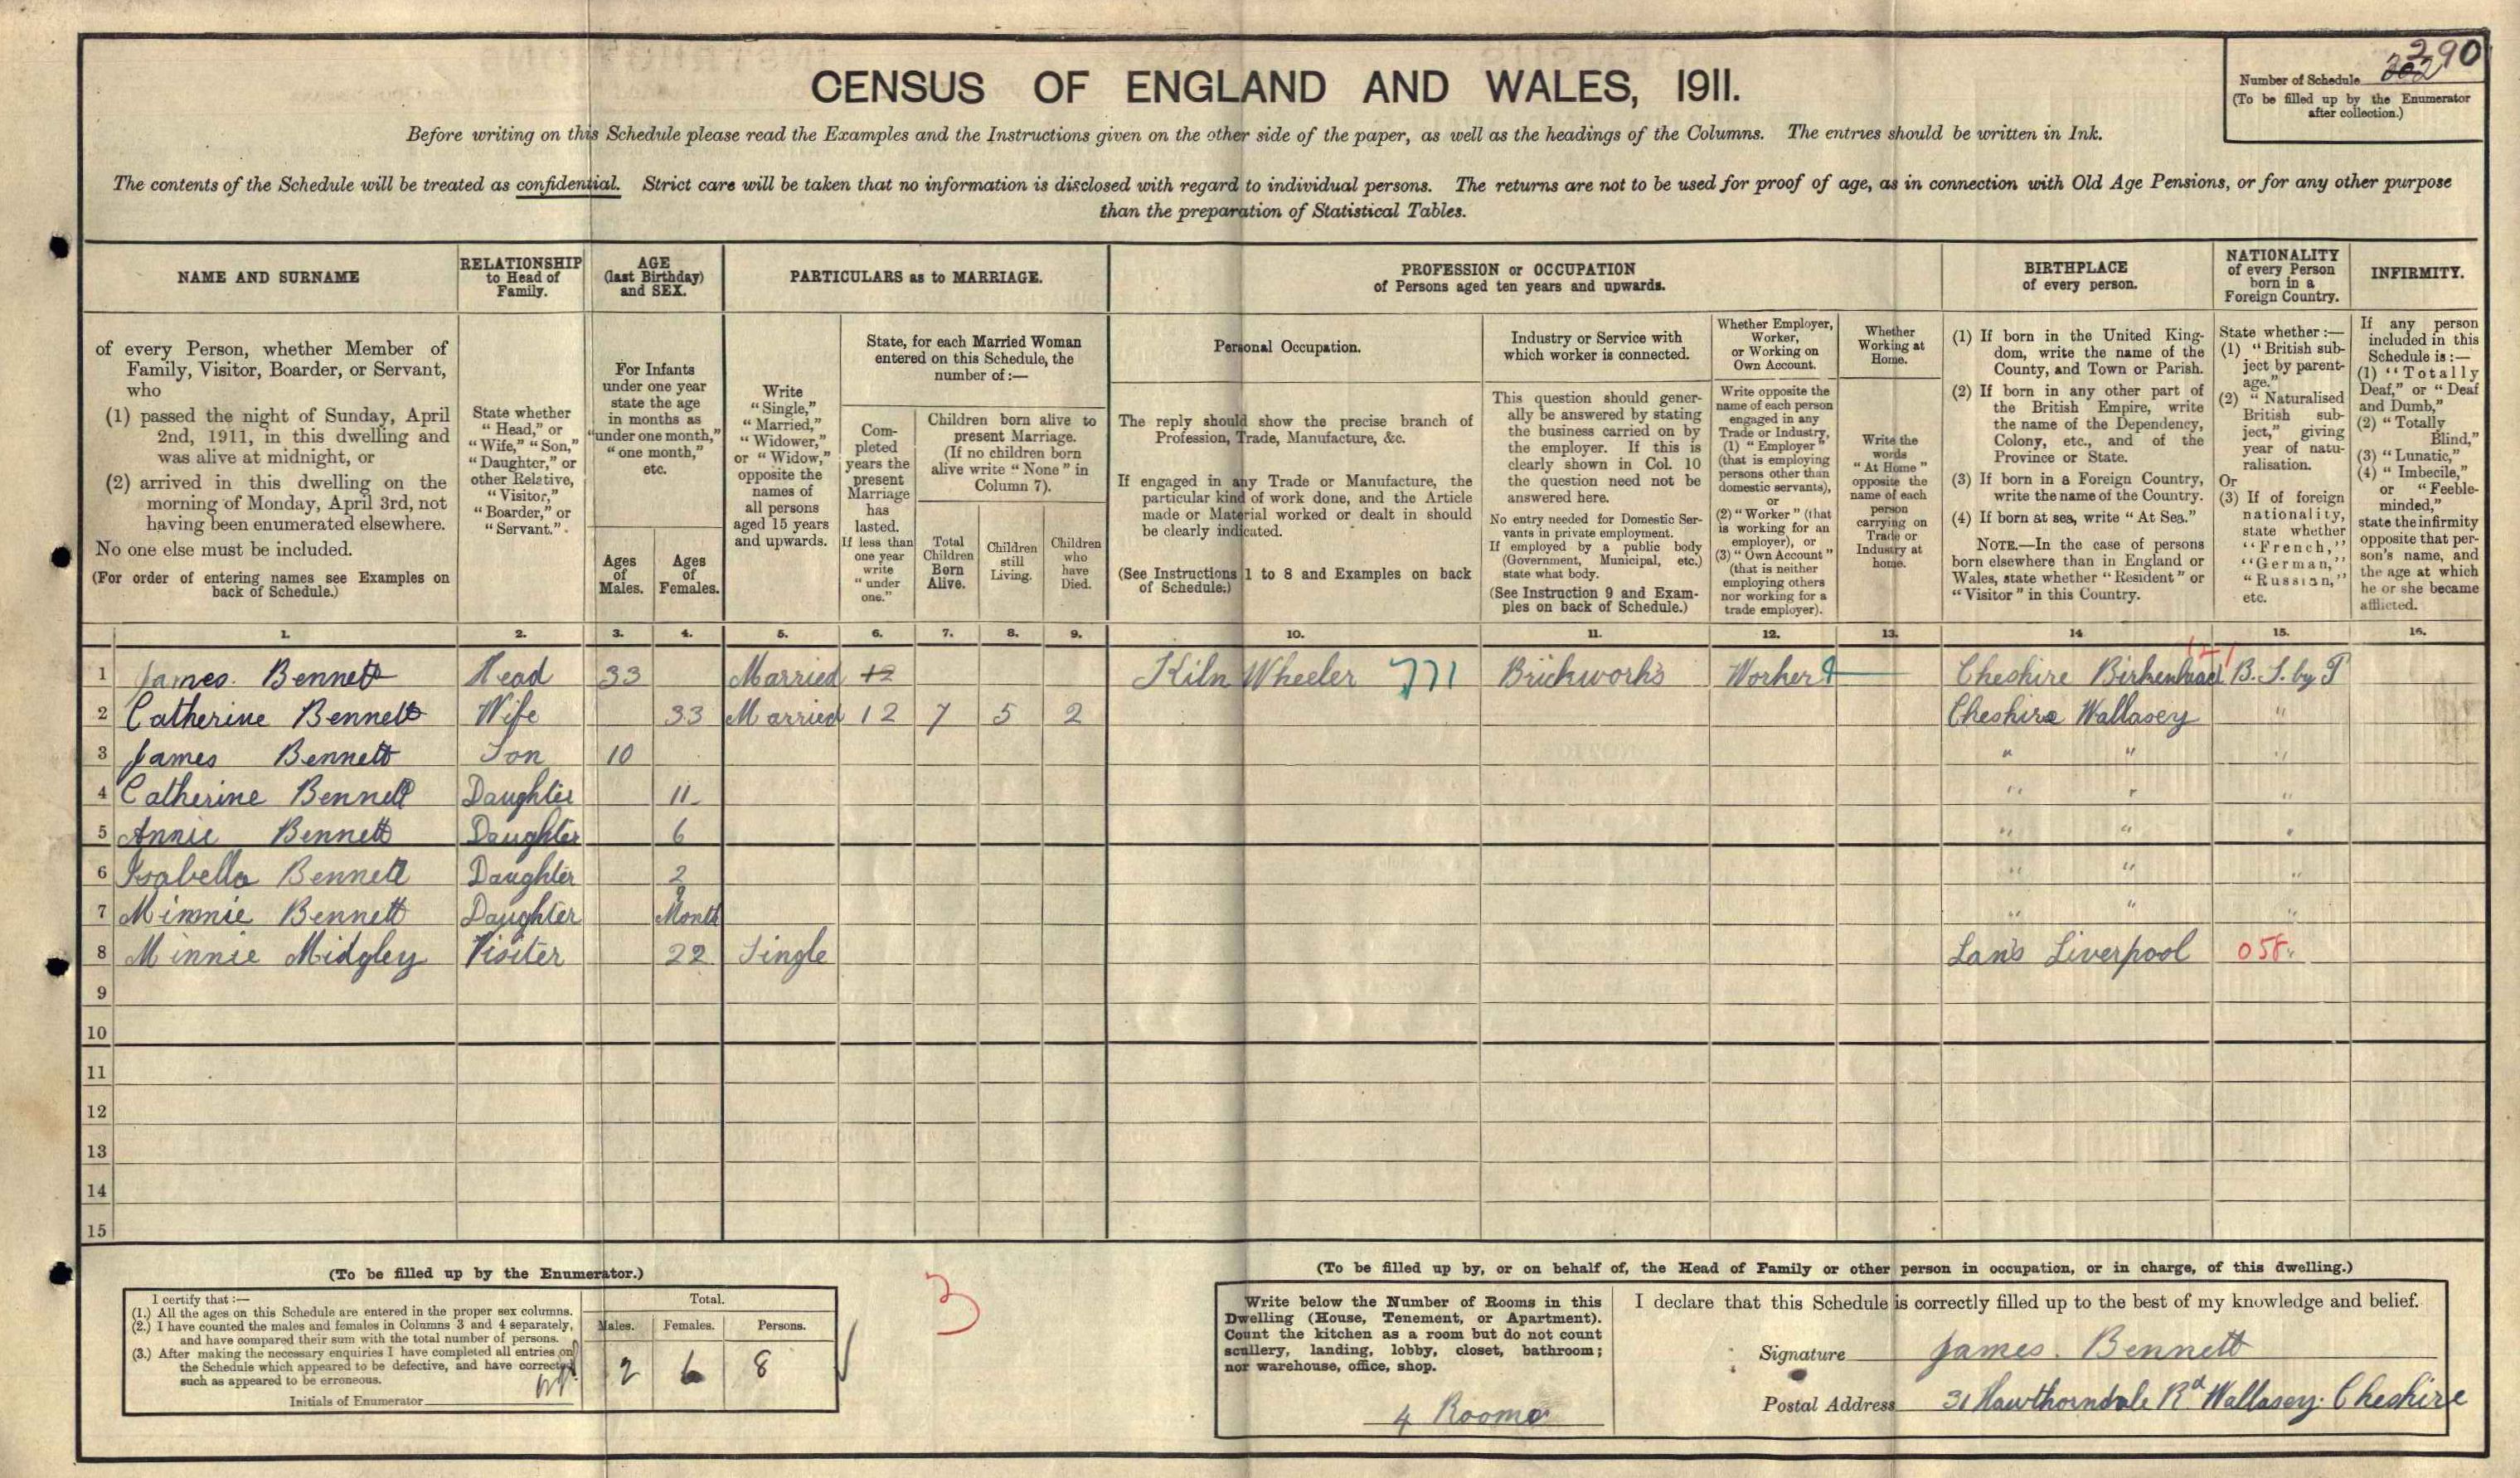 CENSUS OF ENGLAND AND WALES, 1911.
290
Number of Schedule
(To be filled up by the Enumerator
after collection.)
Before writing on this Schedule please read the Examples and the Instructions given on the other side of the paper, as well as the headings of the Columns. The entries should be written in Ink.
The contents of the Schedule will be treated as confidential. Strict care will be taken that no information is disclosed with regard to individual persons. The returns are not to be used for proof of age, as in connection with Old Age Pensions, or for any other purpose
than the preparation of Statistical Tables.
NAME AND SURNAME
of every Person, whether Member of
Family, Visitor, Boarder, or Servant,
who
(1) passed the night of Sunday, April
2nd, 1911, in this dwelling and
was alive at midnight, or
(2) arrived in this dwelling on the
morning of Monday, April 3rd, not
having been enumerated elsewhere.
No one else must be included.
(For order of entering names see Examples on
back of Schedule.)
RELATIONSHIP
to Head of
Family.
State whether
"Head," or
"Wife," "Son,"
"Daughter," or
other Relative,
"Visitor,"
"Boarder," or
"Servant."
AGE
(last Birthday)
and SEX.
For Infants
under one year
state the age
in months as
"under one month,"
"one month,"
etc.
Ages
of
Males.
Ages
of
Females.
PARTICULARS as to MARRIAGE.
Write
"Single,"
"Married,"
"Widower,"
or "Widow,"
opposite the
names of
all persons
aged 15 years
and upwards.
State, for each Married Woman
entered on this Schedule, the
number of :—
Com-
pleted
years the
present
Marriage
has
lasted.
If less than
one year
write
"under
one."
Children born alive to
present Marriage.
(If no children born
alive write "None" in
Column 7).
Total
Children
Born
Alive.
Children
still
Living.
Children
who
have
Died.
PROFESSION or OCCUPATION
of Persons aged ten years and upwards.
Personal Occupation.
The reply should show the precise branch of
Profession, Trade, Manufacture, &c.
If engaged in any Trade or Manufacture, the
particular kind of work done, and the Article
made or Material worked or dealt in should
be clearly indicated.
(See Instructions 1 to 8 and Examples on back
of Schedule.)
Industry or Service with
which worker is connected.
This question should gener-
ally be answered by stating
the business carried on by
the employer. If this is
clearly shown in Col. 10
the question need not be
answered here.
No entry needed for Domestic Ser-
vants in private employment.
If employed by a public body
(Government, Municipal, etc.)
state what body.
(See Instruction 9 and Exam-
ples on back of Schedule.)
Whether Employer,
Worker,
or Working on
Own Account.
Write opposite the
name of each person
engaged in any
Trade or Industry,
(1) "Employer"
(that is employing
persons other than
domestic servants),
or
(2) "Worker" (that
is working for an
employer), or
(3) "Own Account"
(that is neither
employing others
nor working for a
trade employer).
Whether
Working at
Home.
Write the
words
"At Home"
opposite the
name of each
person
carrying on
Trade or
Industry at
home.
BIRTHPLACE
of every person.
(1) If born in the United King-
dom, write the name of the
County, and Town or Parish.
(2) If born in any other part of
the British Empire, write
the name of the Dependency,
Colony, etc., and of the
Province or State.
(3) If born in a Foreign Country,
write the name of the Country.
(4) If born at sea, write "At Sea."
NOTE.—In the case of persons
born elsewhere than in England or
Wales, state whether "Resident" or
"Visitor" in this Country.
NATIONALITY
of every Person
born in a
Foreign Country.
State whether :—
(1) "British sub-
ject by parent-
age."
(2) "Naturalised
British sub-
ject," giving
year of natu-
ralisation.
Or
(3) If of foreign
nationality,
state whether
"French,"
"German,"
"Russian,"
etc.
INFIRMITY.
If any person
included in this
Schedule is:—
(1) "Totally
Deaf," or "Deaf
and Dumb,"
(2) "Totally
Blind,"
(3) "Lunatic,"
(4) "Imbecile,"
or "Feeble-
minded,"
state the infirmity
opposite that per-
son's name, and
the age at which
he or she became
afflicted.
1. 2. 3. 4. 5. 6. 7. 8. 9. 10. 11. 12. 13. 14 15. 16.
1 James. Bennett Head 33 Married 12 Kiln Wheeler 771 Brickworks Worker Cheshire Birkenhead B. S. by P
2 Catherine Bennett Wife 33 Married 12 7 5 2 Cheshire Wallasey "
3 James Bennett Son 10 " " "
4 Catherine Bennett Daughter 11 " " "
5 Annie Bennett Daughter 6 " " "
6 Isabella Bennett Daughter 2 " " "
7 Minnie Bennett Daughter 9 Month " " "
8 Minnie Midgley Visiter 22 Single Lans Liverpool 058
9
10
11
12
13
14
15
(To be filled up by the Enumerator.)
I certify that :—
(1.) All the ages on this Schedule are entered in the proper sex columns.
(2.) I have counted the males and females in Columns 3 and 4 separately,
and have compared their sum with the total number of persons.
(3.) After making the necessary enquiries I have completed all entries on
the Schedule which appeared to be defective, and have corrected
such as appeared to be erroneous.
Initials of Enumerator
Total.
Males. Females. Persons.
2 6 8
3
(To be filled up by, or on behalf of, the Head of Family or other person in occupation, or in charge, of this dwelling.)
Write below the Number of Rooms in this
Dwelling (House, Tenement, or Apartment).
Count the kitchen as a room but do not count
scullery, landing, lobby, closet, bathroom;
nor warehouse, office, shop.
4 Rooms
I declare that this Schedule is correctly filled up to the best of my knowledge and belief.
Signature James. Bennett
Postal Address 31 Hawthorndale Rd Wallasey. Cheshire